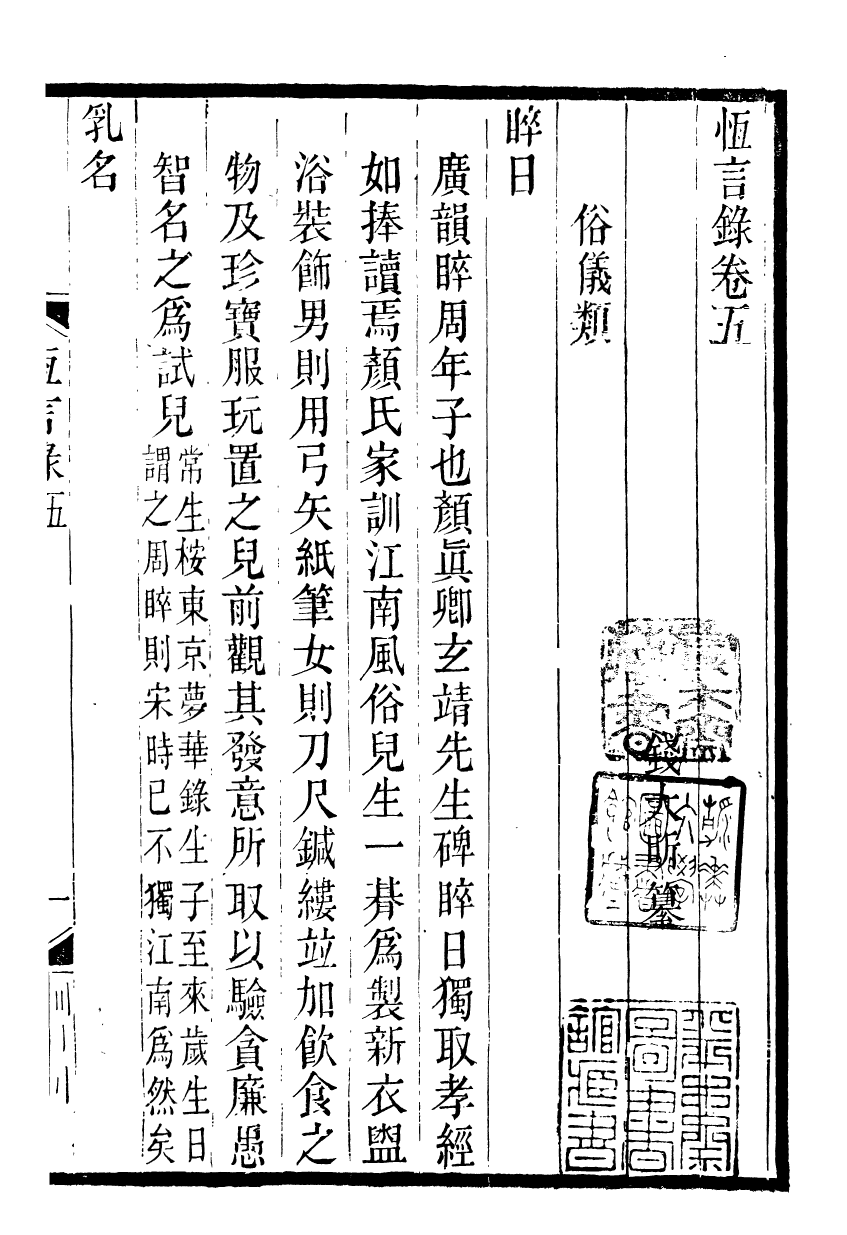 恆言錄卷五
錢大昕纂
俗儀類
晬日
廣韻晬周年子也顏眞卿玄靖先生碑晬日獨取孝經
如捧讀焉顏氏家訓江南風俗兒生一朞爲製新衣盥
浴裝飾男則用弓矢紙筆女則刀尺鍼縷並加飮食之
物及珍寶服玩置之兒前觀其發意所取以驗貪廉愚
智名之爲試兒常生桉東京夢華錄生子至來歲生日
謂之周晬則宋時已不獨江南爲然矣
乳名
恆言錄五
一